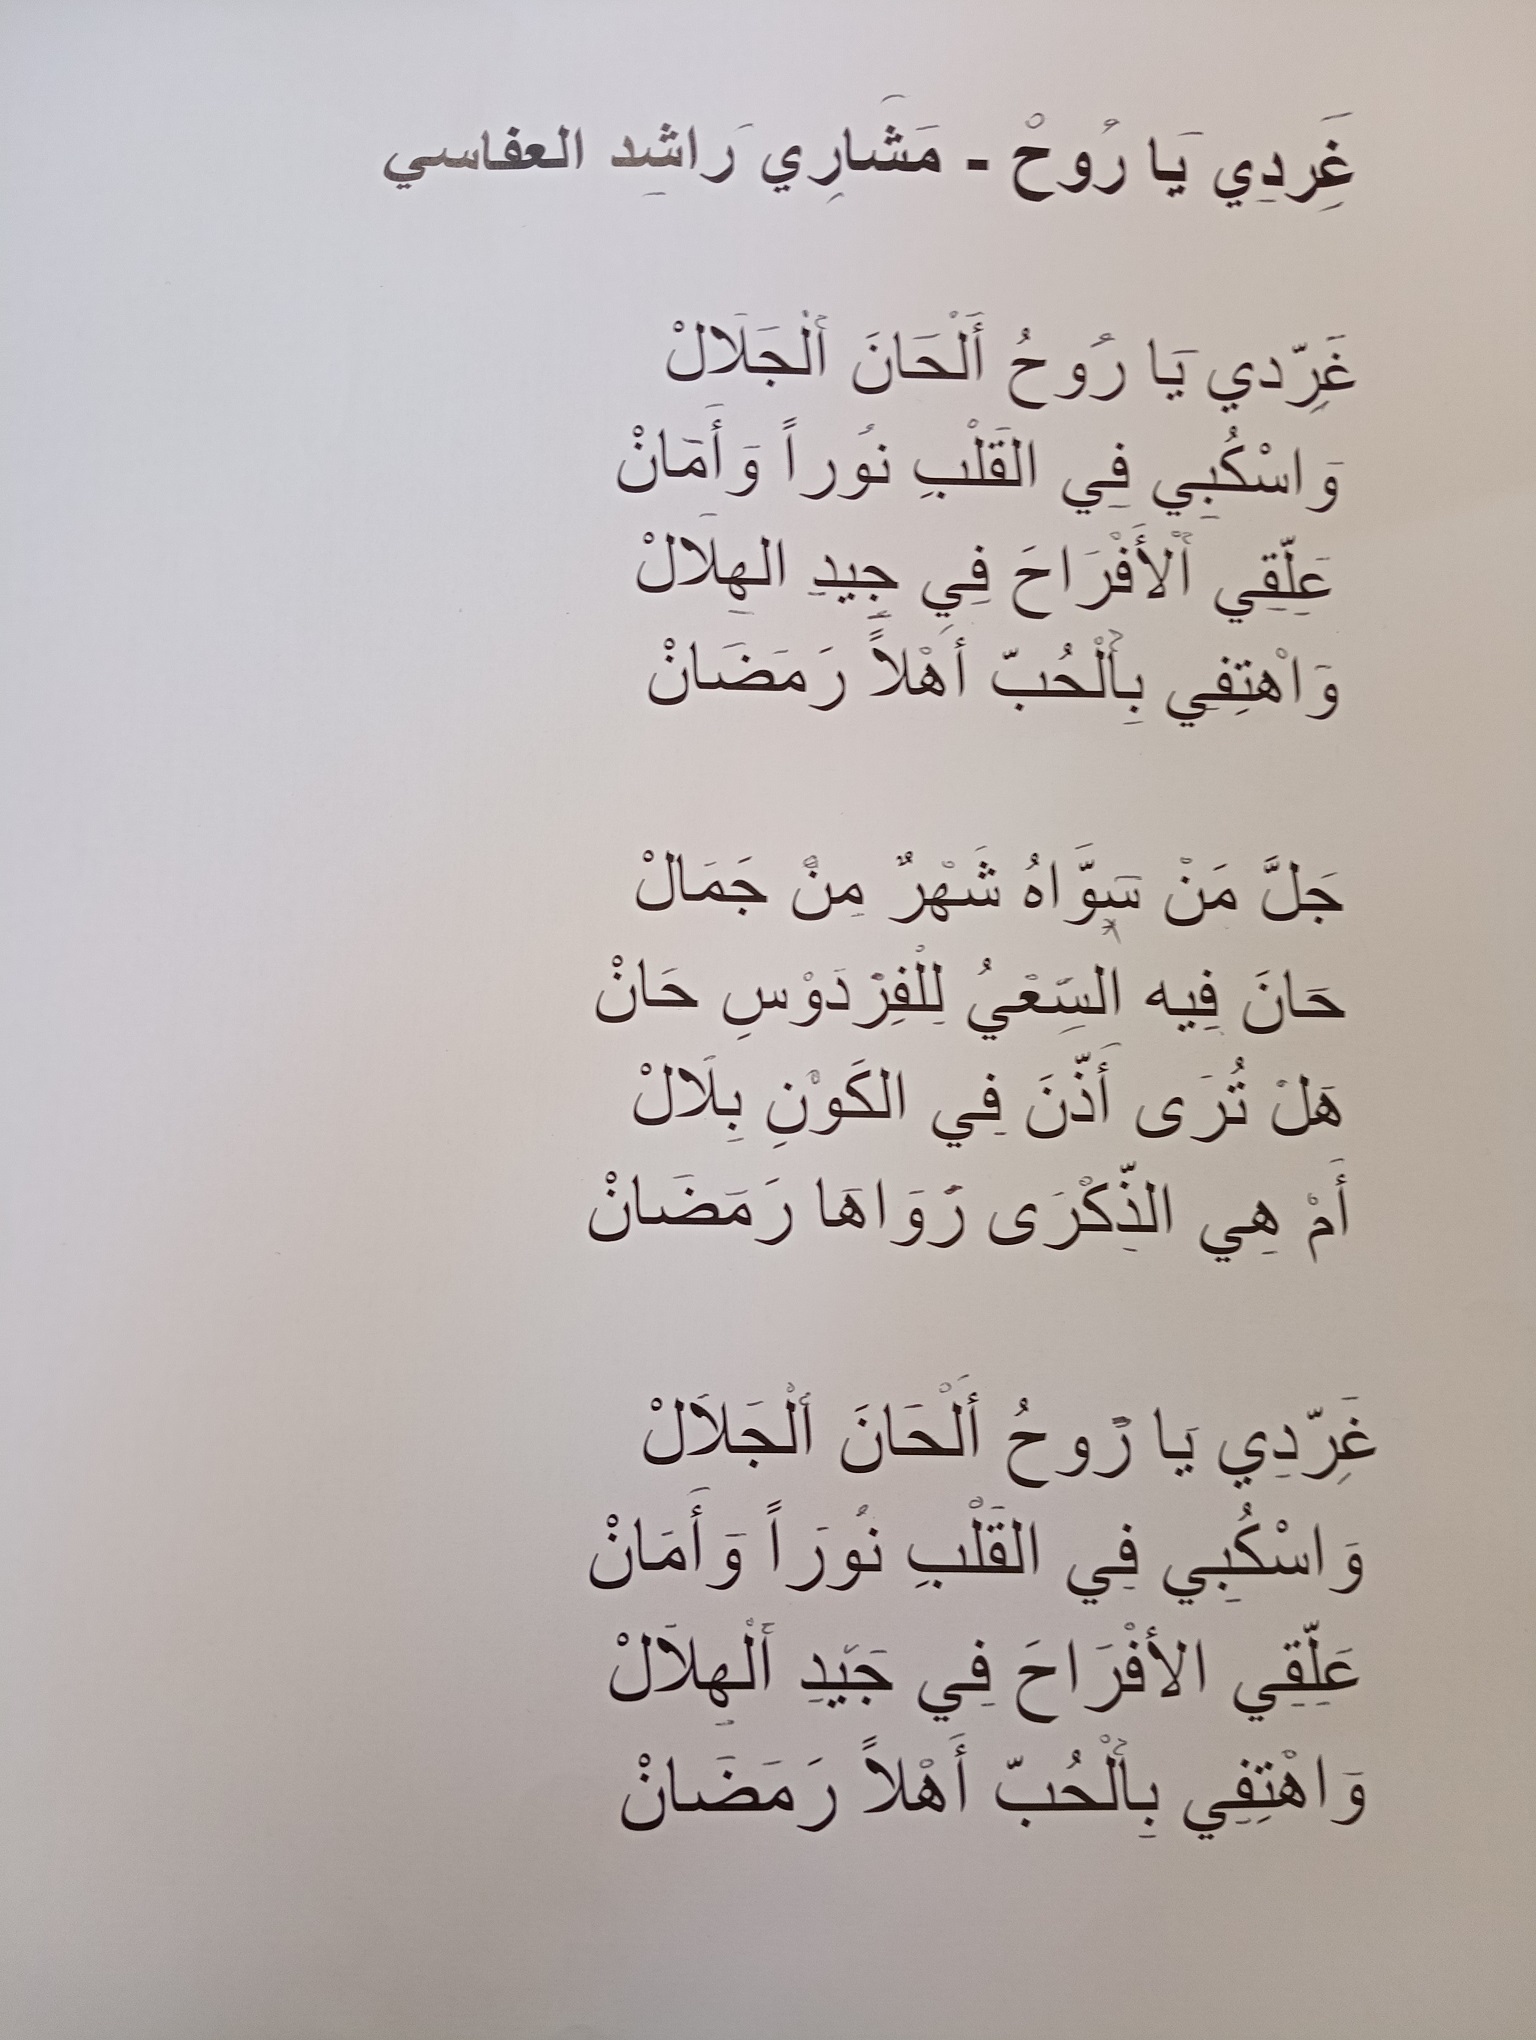 غَرِدِي يَا رُوحْ - مَشَارِي رَاشِد العفاسي
غَرِّدي يَا رُوحُ أَلْحَانَ اَلْجَلَالْ
وَاسْكُبِي فِي القَلْبِ نُوراً وَأَمَانْ
عَلِّقِي اَلْأَفْرَاحَ فِي جِيدِ الهِلَالْ
وَاهْتِفِي بِاَلْحُبّ أَهْلاً رَمَضَانْ
جَلَّ مَنْ سَوَّاهُ شَهْرٌ مِنْ جَمَالْ
حَانَ فِيه السَِعْيُ لِلْفِرْدَوْسِ حَانْ
هَلْ تُرَى أَذّنَ فِي الكَوْنِ بِلَالْ
أَمْ هِي الذِّكْرَى رَوَاهَا رَمَضَانْ
غَرِّدِي يَا رُوحُ أَلْحَانَ اَلْجَلَالْ
وَاسْكُبِي فِي القَلْبِ نُورَاً وَأَمَانْ
عَلِّقِي الأفْرَاحَ فِي جَيَدِ اَلْهِلَالْ
وَاهْتِفِي بِاَلْحُبّ أَهْلاً رَمَضَانْ